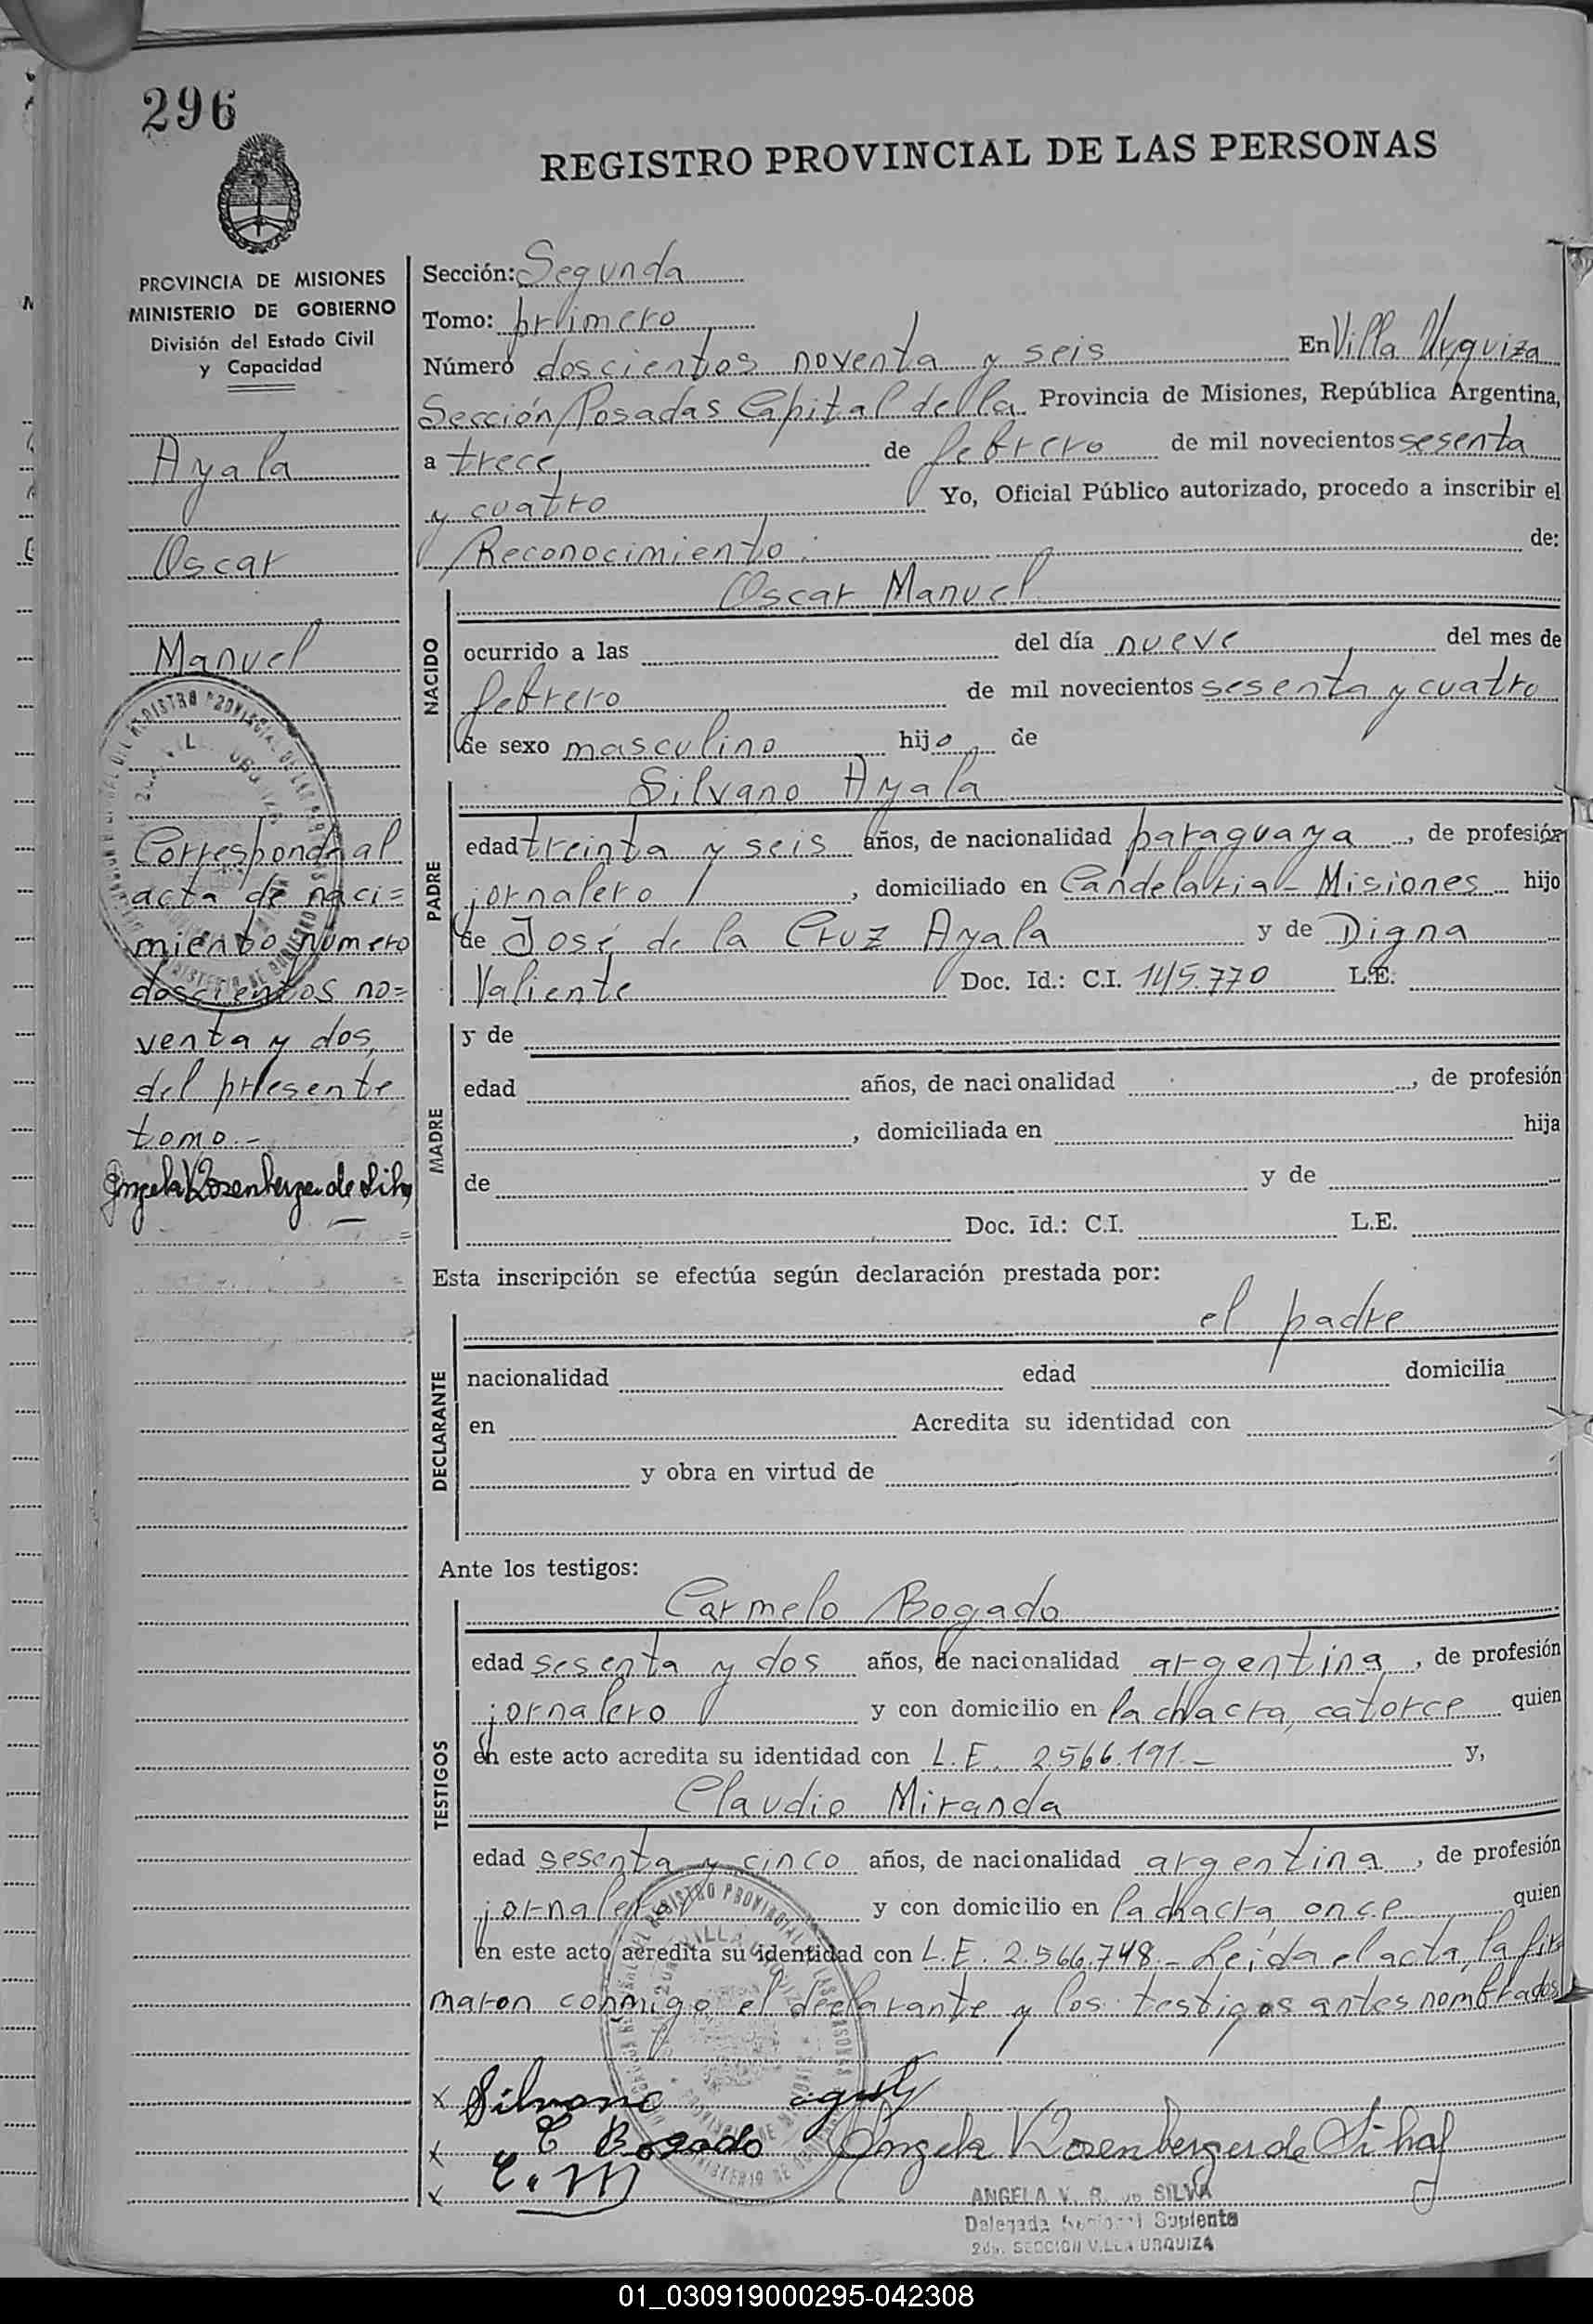 296
REGISTRO PROVINCIAL DE LAS PERSONAS
PROVINCIA DE MISIONES
MINISTERIO DE GOBIERNO
División del Estado Civil
y Capacidad
Ayala
Oscar
Manuel
Corresponde al
acta de naci=
miento número
doscientos no=
venta y dos,
del presente
tomo.-
Angela V Rosenberger de Silva
Sección: Segunda
Tomo: primero
Número doscientos noventa y seis En Villa Urquiza
Sección Posadas Capital de la Provincia de Misiones, República Argentina,
a trece, de febrero de mil novecientos sesenta
y cuatro Yo, Oficial Público autorizado, procedo a inscribir el
Reconocimiento: de:
NACIDO
Oscar Manuel
ocurrido a las del día nueve del mes de
febrero de mil novecientos sesenta y cuatro
de sexo masculino hijo de
PADRE
Silvano Ayala
edad treinta y seis años, de nacionalidad paraguaya, de profesión
jornalero, domiciliado en Candelaria - Misiones hijo
de José de la Cruz Ayala y de Digna
Valiente Doc. Id.: C.I. 145.770 L.E.
MADRE
y de
edad años, de nacionalidad , de profesión
, domiciliada en hija
de y de
Doc. Id.: C.I. L.E.
Esta inscripción se efectúa según declaración prestada por:
DECLARANTE
el padre
nacionalidad edad domicilia
en Acredita su identidad con
y obra en virtud de
Ante los testigos:
TESTIGOS
Carmelo Bogado
edad sesenta y dos años, de nacionalidad argentina, de profesión
jornalero y con domicilio en la chacra, catorce quien
en este acto acredita su identidad con L.E. 2.566.191.- y,
Claudio Miranda
edad sesenta y cinco años, de nacionalidad argentina, de profesión
jornalero y con domicilio en la chacra once quien
en este acto acredita su identidad con L.E. 2.566.748.- Leída el acta, la fir
maron conmigo el declarante y los testigos antes nombrados
x Silvano
x C Bogado Angela V Rosenberger de Silva
x C. M
ANGELA V. R. de SILVA
Delegada Seccional Suplente
2da. SECCION VILLA URQUIZA
01_030919000295-042308